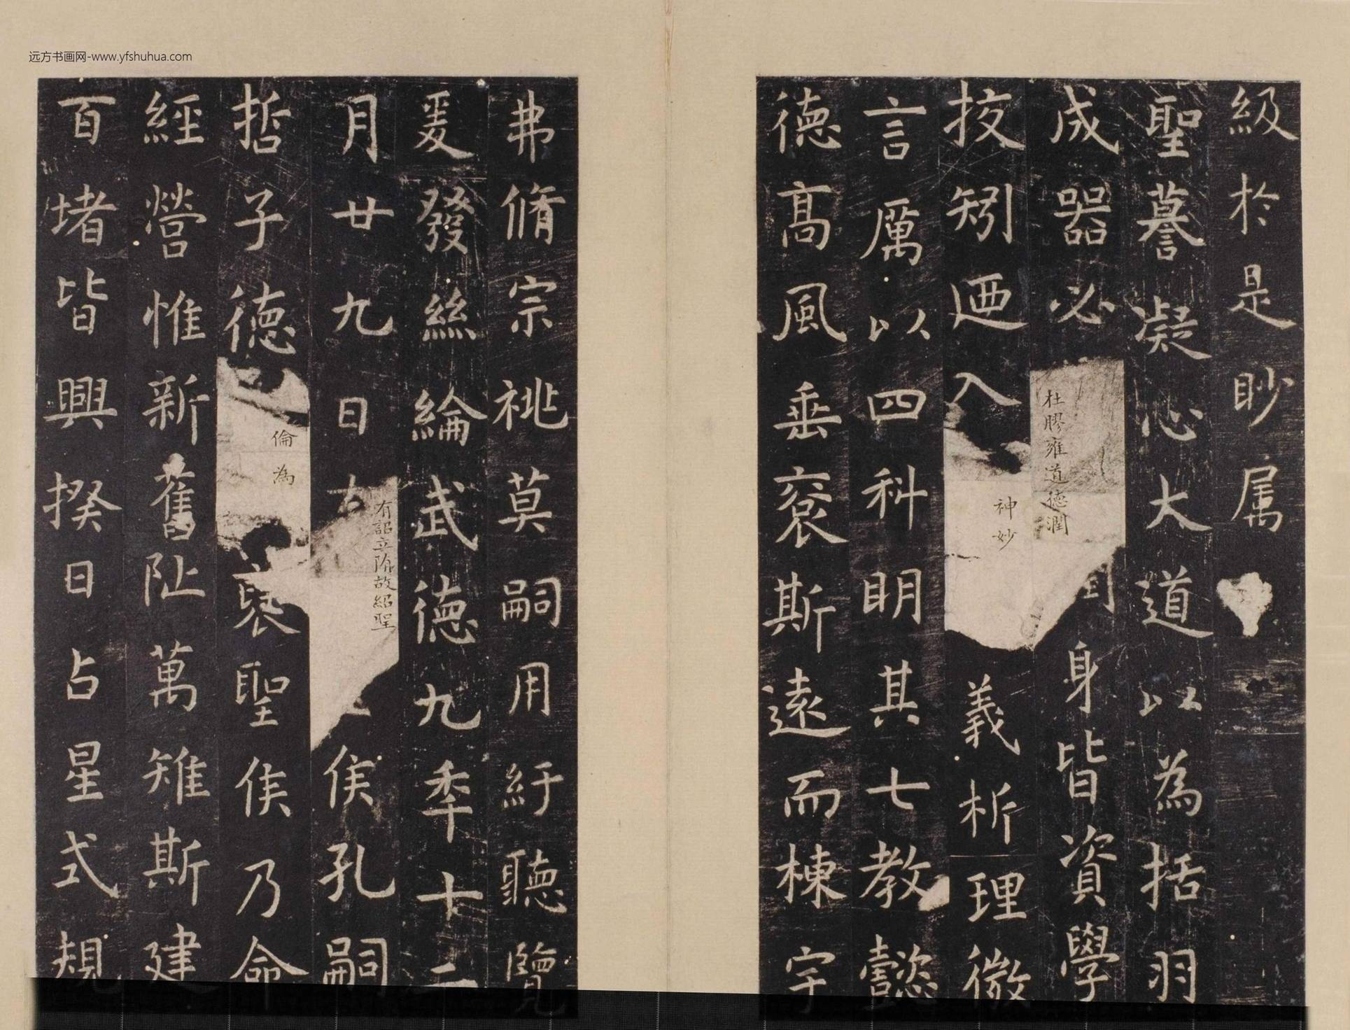 远方书画网-www.yfshuhua.com
級於是眇属
聖謩凝心大道以為括羽
成器必杜膠雍道德潤身皆資學
挍矧迺入神妙義析理微
言厲以四科明其七教懿
德高風垂裕斯遠而棟宇
弗脩宗祧莫嗣用紆聽覽
爰發絲綸武德九年十二
月廿九日有詔立隋故紹聖侯孔嗣
哲子德倫為褒聖侯乃命
經營惟新舊阯萬雉斯建
百堵皆興揆日占星式規